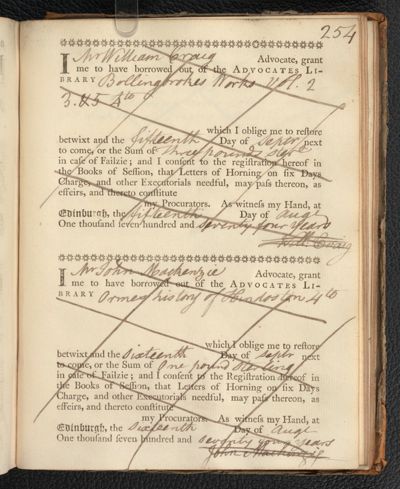 254
I Mr William Craig Advocate, grant
me to have borrowed out of the ADVOCATES LI-
BRARY Bollingbrokes Works Vol. 2
3. & 5 4to
which I oblige me to reſtore
betwixt and the fifteenth Day of Septr next
to come, or the Sum of three pounds ster
in caſe of Failzie; and I conſent to the regiſtration hereof in
the Books of Seſſion, that Letters of Horning on ſix Days
Charge, and other Executorials needful, may paſs thereon, as
effeirs, and thereto conſtitute
my Procurators. As witneſs my Hand, at
Edinburgh, the fifteenth Day of augt
One thouſand ſeven hundred and seventy four years
Will: Craig
I Mr John Mackenzie Advocate, grant
me to have borrowed out of the ADVOCATES LI-
BRARY Ormes history of Hindoston 4to
which I oblige me to reſtore
betwixt and the sixteenth Day of Septr next
to come, or the Sum of One pound sterling
in caſe of Failzie; and I conſent to the Regiſtration hereof in
the Books of Seſſion, that Letters of Horning on ſix Days
Charge, and other Executorials needful, may paſs thereon, as
effeirs, and thereto conſtitute
my Procurators. As witneſs my Hand, at
Edinburgh, the sixteenth Day of Augt
One thouſand ſeven hundred and seventy four years
John Mackenzie